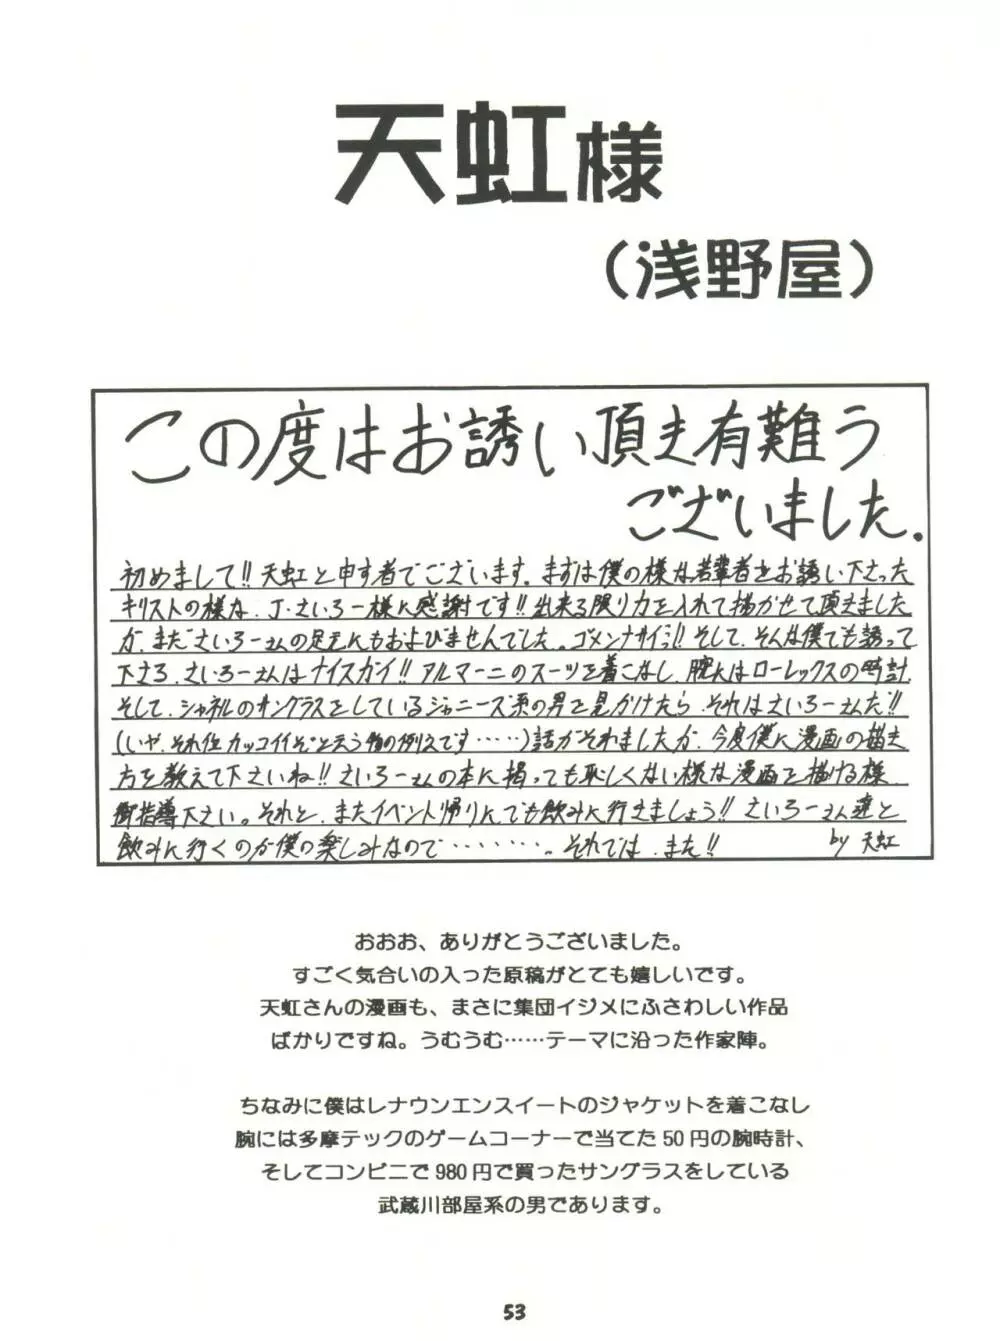 天虹様
（浅野屋）
この度はお誘い頂き有難う
ございました。
初めまして!!天虹と申す者でございます。まずは僕の様な若輩者をお誘い下さった
キリストの様な、J・さいろー様に感謝です!!出来る限り力を入れて描かせて頂きました
が、まださいろーさんの足元にもおよびませんでした。ゴメンナサイッ!!そして、そんな僕でも誘って
下さる、さいろーさんはナイスガイ!!アルマーニのスーツを着こなし、腕にはローレックスの時計、
そして、シャネルのサングラスをしているジャニーズ系の男を見かけたら、それはさいろーさんだ!!
(いや、それ位カッコイイぞと云う物の例えです……)話がそれましたが、今度僕に漫画の描き
方を教えて下さいね!!さいろーさんの本に掲っても恥しくない様な漫画を描ける様、
御指導下さい。それと、またイベント帰りにでも飲みに行きましょう!!さいろーさん達と
飲みに行くのが僕の楽しみなので………。それでは、また!!
by 天虹
おおお、ありがとうございました。
すごく気合いの入った原稿がとても嬉しいです。
天虹さんの漫画も、まさに集団イジメにふさわしい作品
ばかりですね。うむうむ……テーマに沿った作家陣。
ちなみに僕はレナウンエンスイートのジャケットを着こなし
腕には多摩テックのゲームコーナーで当てた50円の腕時計、
そしてコンビニで980円で買ったサングラスをしている
武蔵川部屋系の男であります。
53